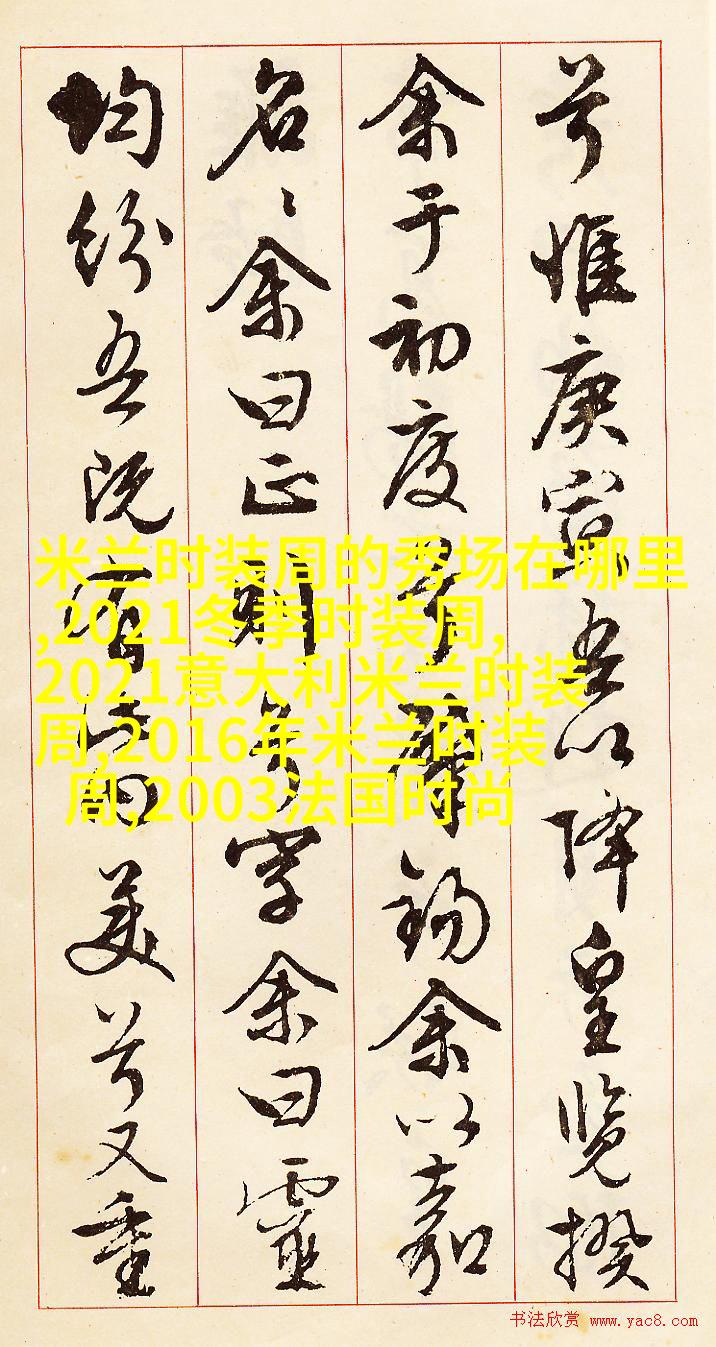 兮惟庚寅吾以降皇覽揆
余于初度兮肇錫余以嘉
名〻余曰正則兮字余曰靈
均紛吾既有此内美兮又重
米兰时装周的秀场在哪里
,2021冬季时装周,
2021意大利米兰时装
周,2016年米兰时装
周,2003法国时尚
书法欣赏 www.yac8.com